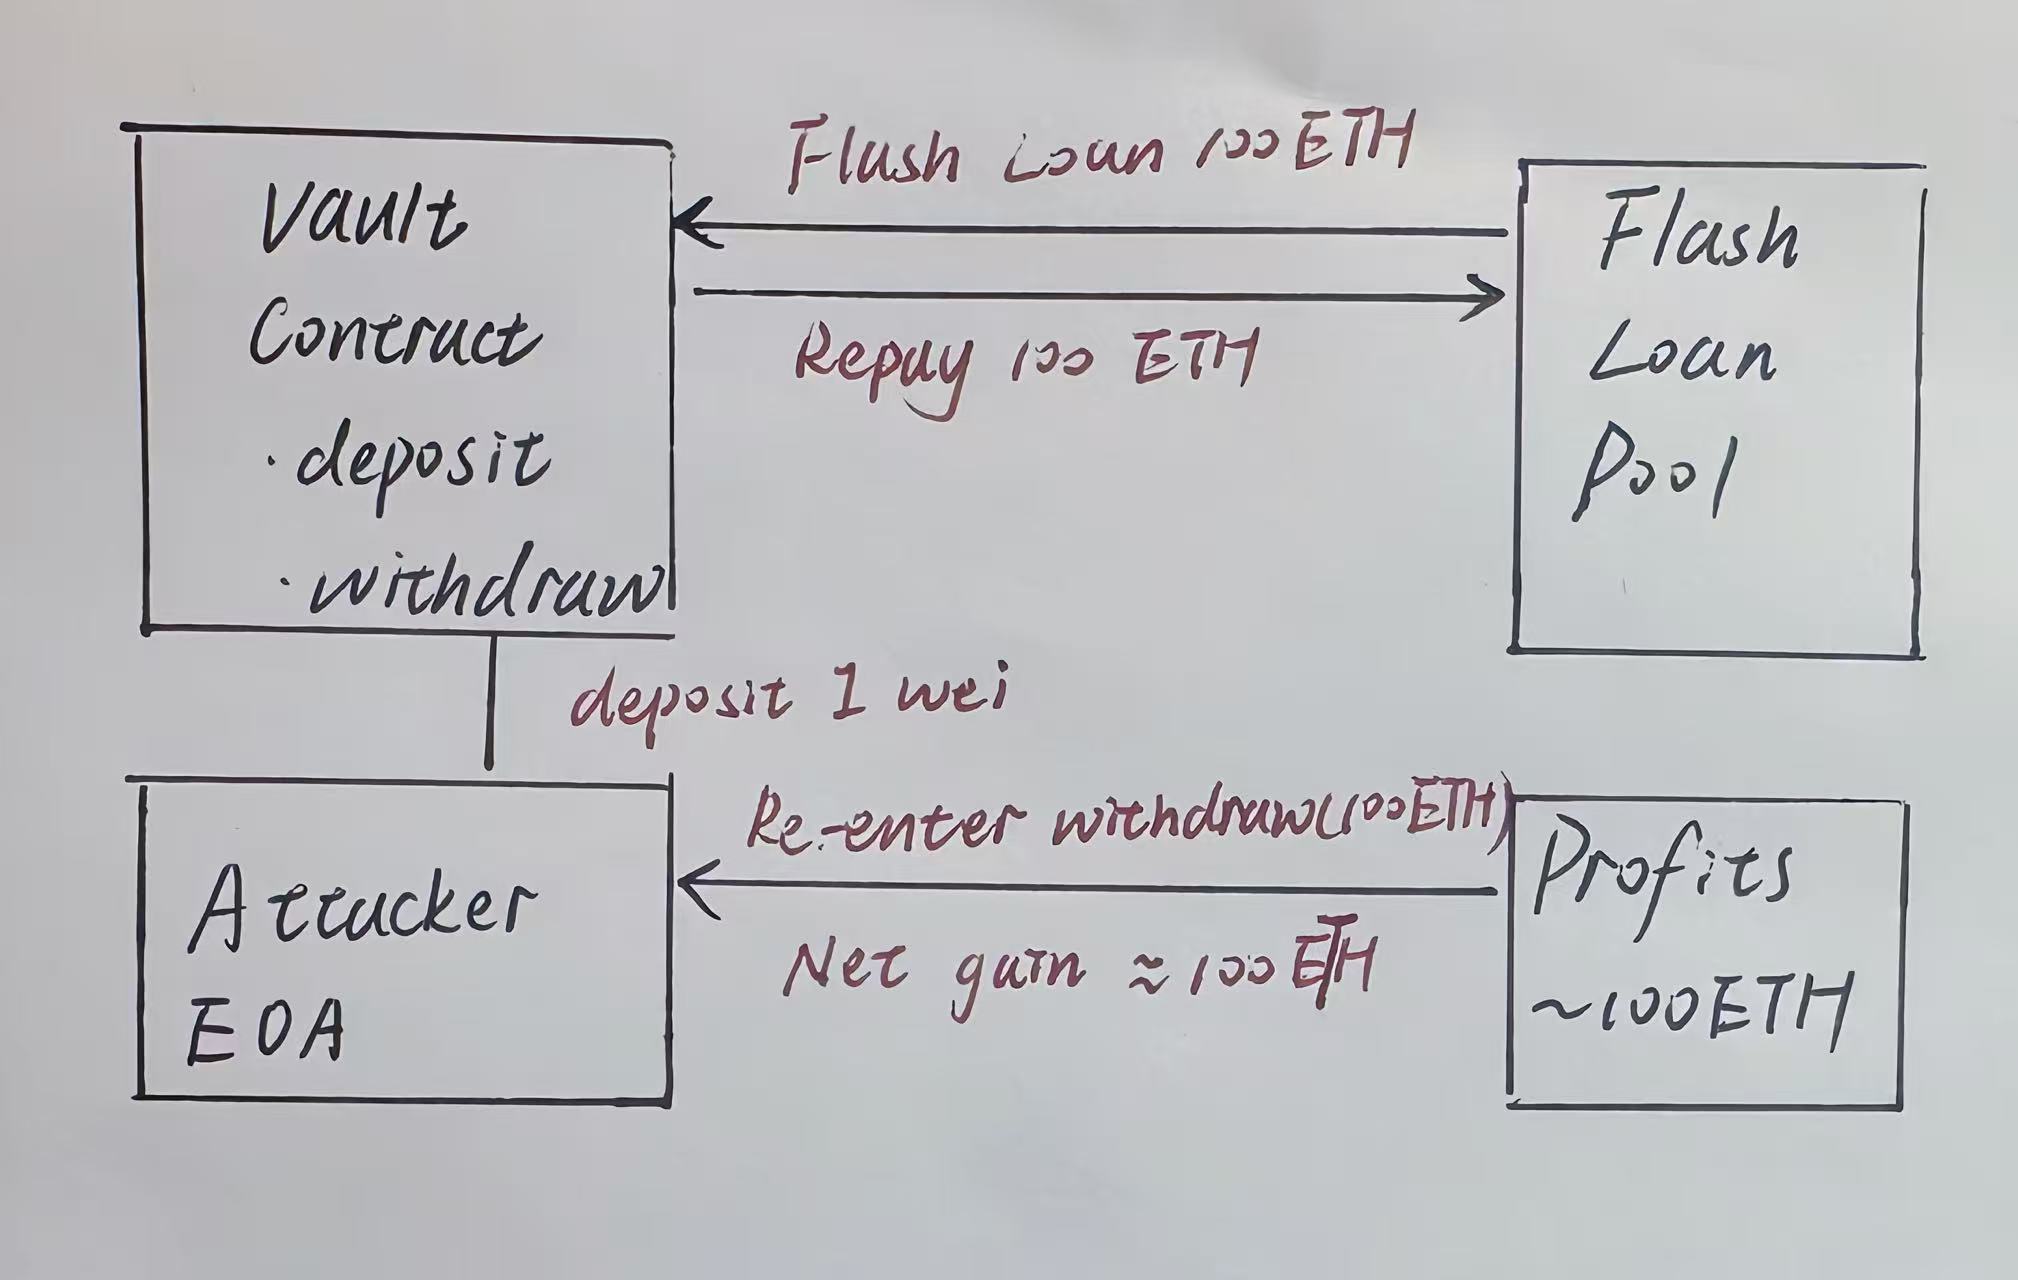 Vault
Contract
· deposit
· withdraw
Flash Loan 100 ETH
Repay 100 ETH
Flash
Loan
Pool
deposit 1 wei
Attacker
EOA
Re-enter withdraw(100ETH)
Net gain ≈ 100 ETH
Profits
~100ETH